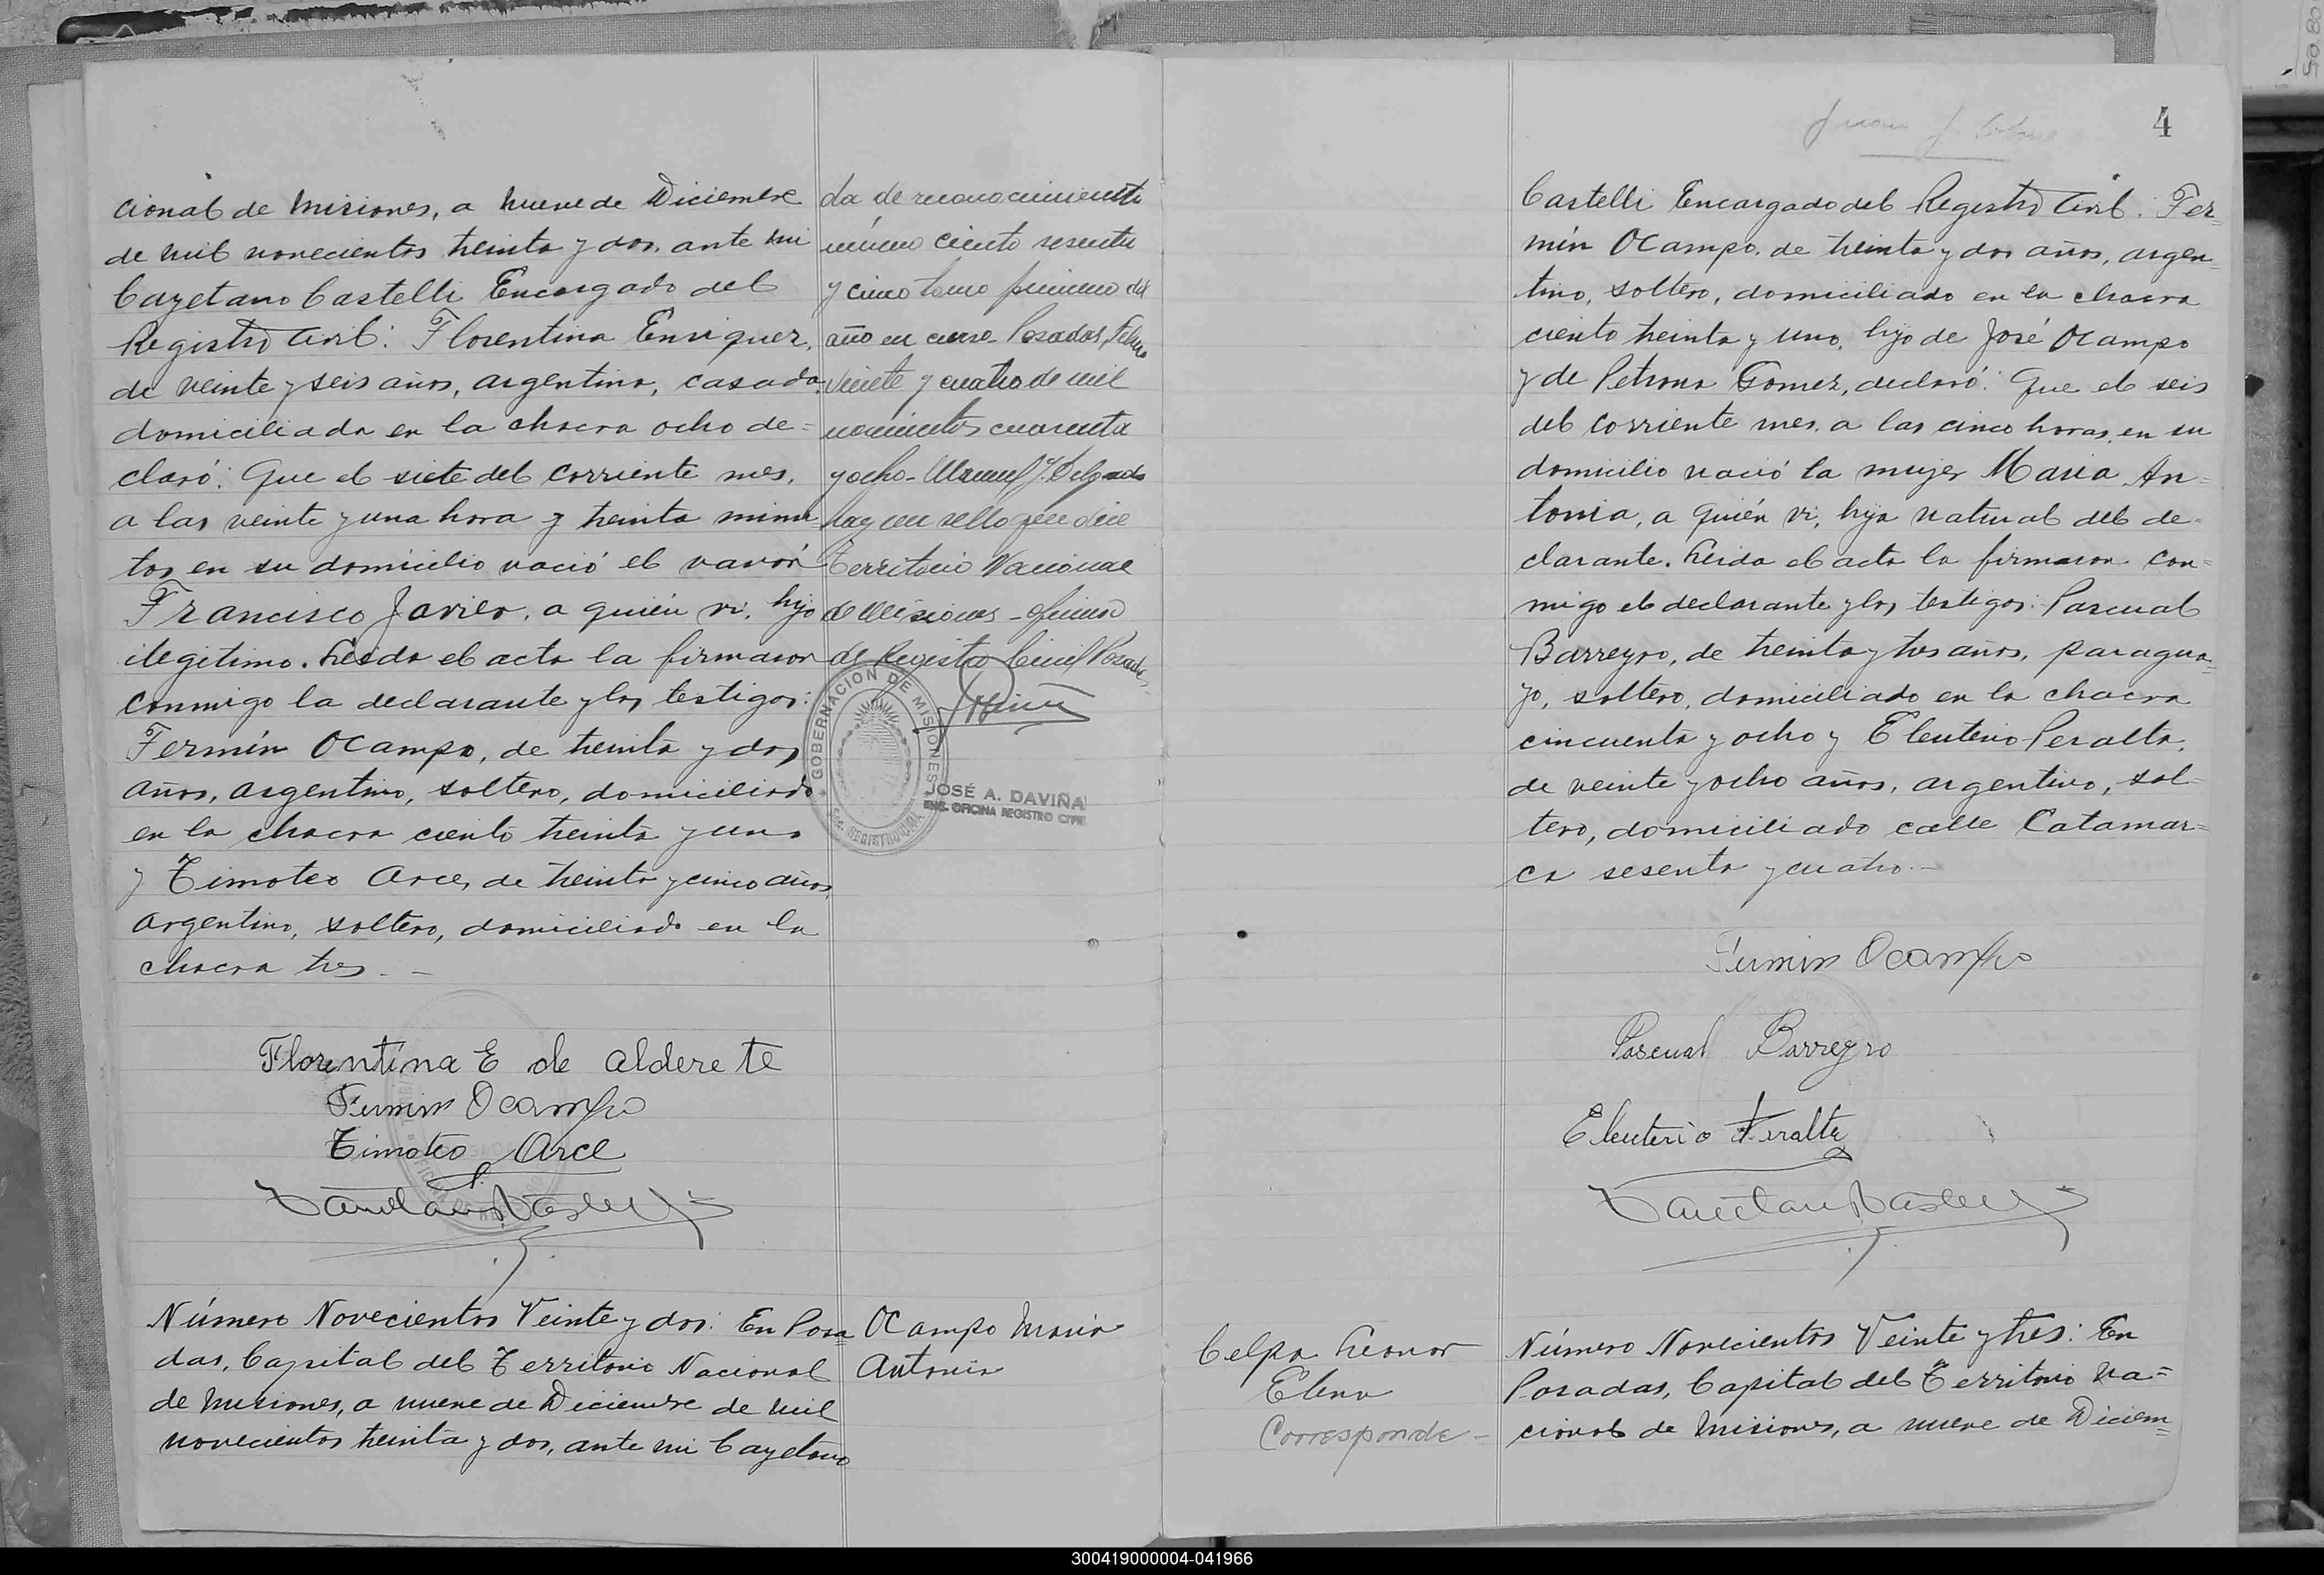 cional de Misiones, a nueve de Diciembre
de mil novecientos treinta y dos, ante mi
Cayetano Castelli Encargado del
Registro Civil: Florentina Enriquez,
de veinte y seis años, argentina, casada,
domiciliada en la chacra ocho de=
claró: Que el siete del corriente mes,
a las veinte y una hora y treinta minu-
tos en su domicilio nació el varón
Francisco Javier, a quién vi, hijo
ilegitimo. Leida el acta la firmaron
conmigo la declarante y los testigos:
Fermín Ocampo, de treinta y dos
años, argentino, soltero, domiciliado
en la chacra ciento treinta y uno
y Timoteo Arce, de treinta y cinco años,
argentino, soltero, domiciliado en la
chacra tres.-
Florentina E de Alderete
Fermin Ocampo
Timoteo Arce
da de reconocimiento
número ciento sesenta
y cinco tomo primero del
año en curso. Posadas, Febrero
veinte y cuatro de mil
novecientos cuarenta
y ocho - Manuel J. Delgado
hay un sello que dice
Territorio Nacional
de Misiones - oficina
de Registro Civil Posadas
GOBERNACION DE MISIONES
JOSÉ A. DAVIÑA
ENC. OFICINA REGISTRO CIVIL
Número Novecientos Veinte y dos: En Posa=
das, Capital del Territorio Nacional
de Misiones, a nueve de Diciembre de mil
novecientos treinta y dos, ante mi Cayetano
Ocampo Maria
Antonia
4
Castelli Encargado del Registro Civil: Fer=
mín Ocampo, de treinta y dos años, argen=
tino, soltero, domiciliado en la chacra
ciento treinta y uno, hijo de José Ocampo
y de Petrona Gomez, declaró: Que el seis
del corriente mes, a las cinco horas, en su
domicilio nació la mujer Maria An=
tonia, a quién vi, hija natural del de-
clarante. Leida el acta la firmaron con=
migo el declarante y los testigos: Pascual
Barreyro, de treinta y tres años, paragua=
yo, soltero, domiciliado en la chacra
cincuenta y ocho y Eleuterio Peralta,
de veinte y ocho años, argentino, sol-
tero, domiciliado calle Catamar=
ca sesenta y cuatro.-
Fermin Ocampo
Pascual Barreyro
Eleuterio Peralta
Celpa Leonor
Elena
Corresponde -
Número Novecientos Veinte y tres: En
Posadas, Capital del Territorio Na=
cional de Misiones, a nueve de Diciem=
300419000004-041966